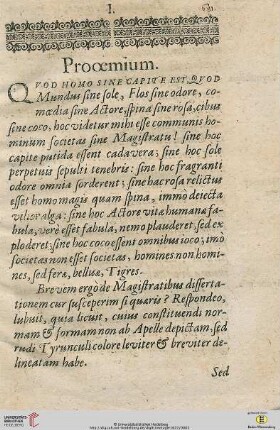 I.
Prooemium.
QVOD HOMO SINE CAPITE EST, QVOD
Mundus sine sole, Flos sine odore, co-
mœdia sine Actore, spina sine rosa, cibus
sine coco, hoc videtur mihi esse communis ho-
minum societas sine Magistratu! sine hoc
capite putida essent cadavera; sine hoc sole
perpetuis sepulti tenebris: sine hoc fragranti
odore omnia sorderent; sine hac rosa relictus
esset homo magis quam spina, immò dejecta
vilior alga: sine hoc Actore vita humana fa-
bula, verè esset fabula, nemo plauderet, sed ex-
ploderet; sine hoc coco essent omnibus ioco; imò
societas non esset societas, homines non homi-
nes, sed feræ, belluæ, Tigres.
Brevem ergò de Magistratibus disserta-
tionem cur susceperim si quaris? Respondeo,
lubuit, quia licuit, cuius constituendi nor-
mam & formam non ab Apelle depictam, sed
rudi Tyrunculi colore leviter & breviter de-
lineatam habe.
Sed